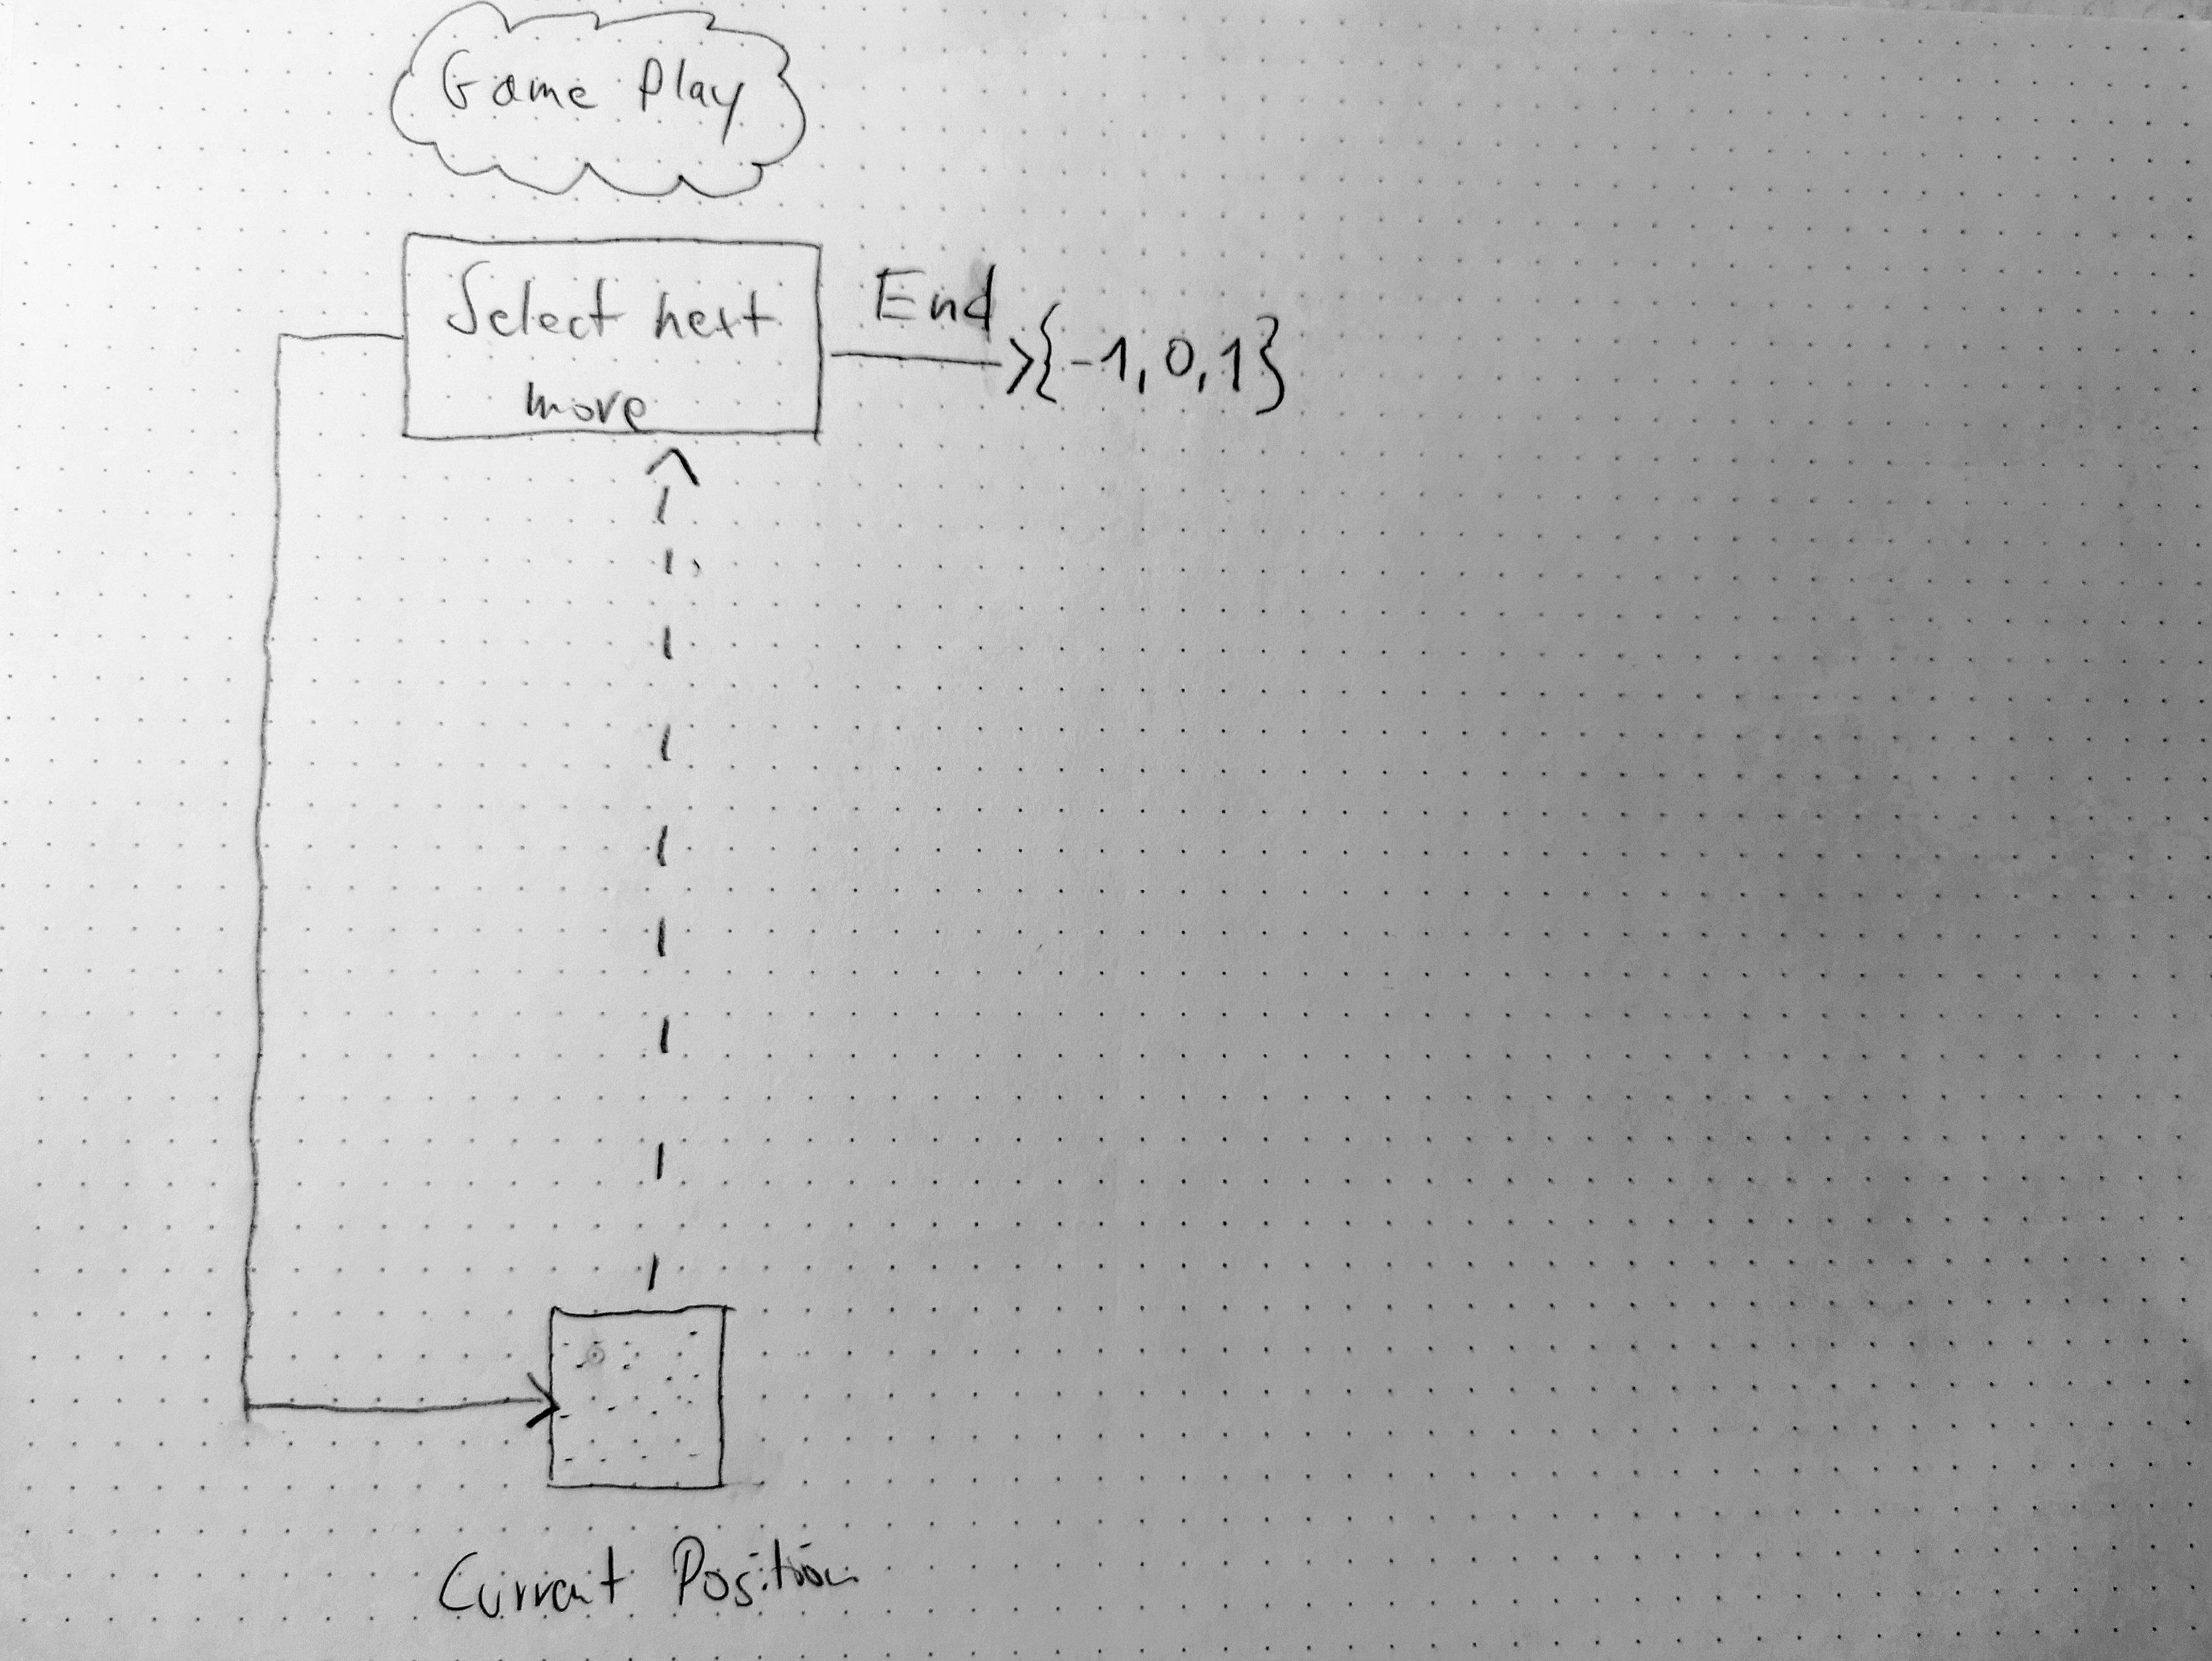 Game Play
Select next
move
End
{-1, 0, 1}
Current Position